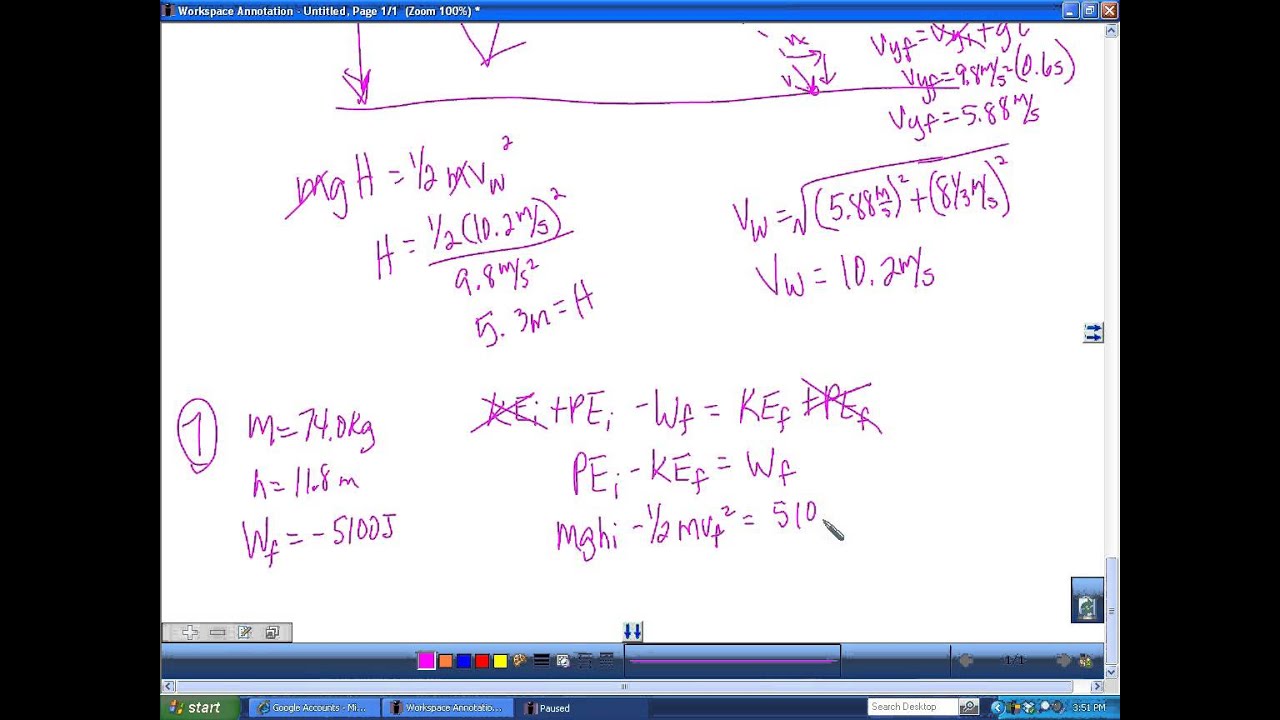 Workspace Annotation - Untitled, Page 1/1 (Zoom 100%) *
Vyf = Vyi + gt
Vyf = 9.8 m/s² (0.6s)
Vyf = 5.88 m/s
Vx
V
mgH = 1/2 mVw²
H = 1/2 (10.2 m/s)² / 9.8 m/s²
5.3m = H
Vw = √(5.88 m/s)² + (8 1/3 m/s)²
Vw = 10.2 m/s
1
m = 74.0kg
h = 11.8 m
Wf = -5100J
KEi + PEi - Wf = KEf + PEf
PEi - KEf = Wf
mghi - 1/2 mvf² = 510
1/1
start
Google Accounts - Mi...
Workspace Annotatio...
Paused
Search Desktop
3:51 PM